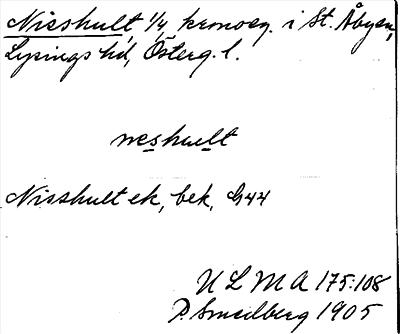 Nisshult 1/4 kronoeg. i St. Åbysn,
Lysings hd, Österg. l.
neshult
Nisshult ek, bek, G44
ULMA 175:108
P. Smedberg 1905